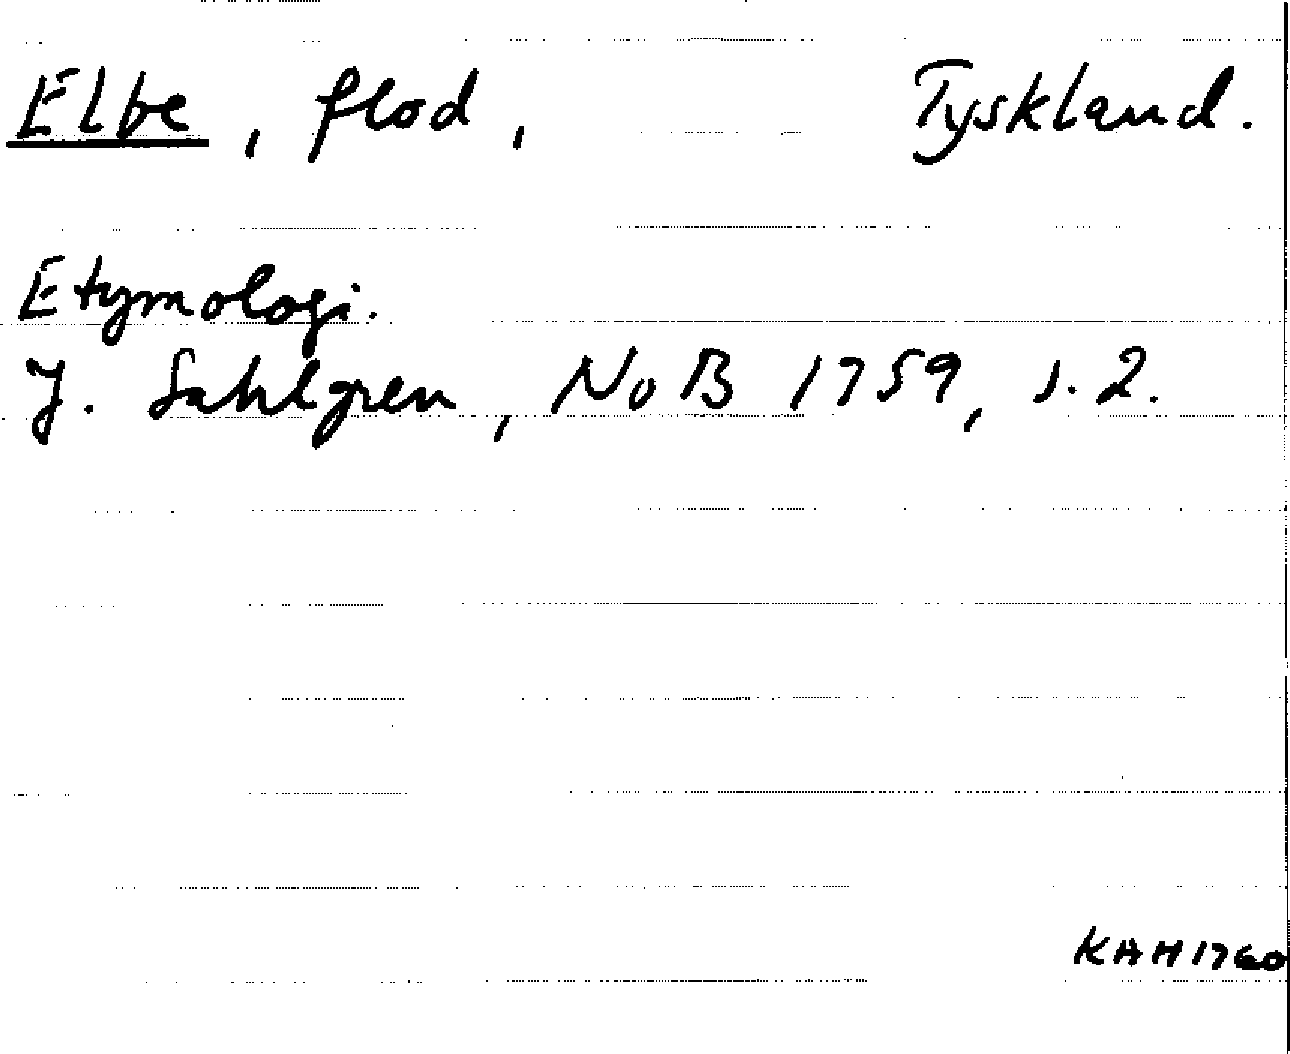 Elbe, flod, Tyskland.
Etymologi.
J. Sahlgren, NoB 1959, s. 2.
KAH 1960